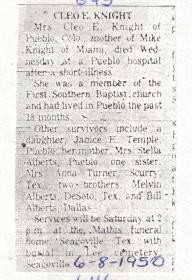 CLEO E. KNIGHT
Mrs. Cleo E. Knight of
Pueblo, Colo., mother of Mike
Knight of Miami, died Wed-
nesday at a Pueblo hospital
after a short illness.
She was a member of the
First Southern Baptist church
and had lived in Pueblo the past
18 months.
Other survivors include a
daughter, Janice E. Temple,
Pueblo; her mother, Mrs. Stella
Alberts, Pueblo; one sister,
Mrs. Anna Turner, Scurry,
Tex.; two brothers, Melvin
Alberts, DeSoto, Tex., and Bill
Alberts, Dallas.
Services will be Saturday at 2
p.m. at the Mathis funeral
home, Seagoville, Tex., with
burial in Lee cemetery,
Seagoville. 6-8-1950